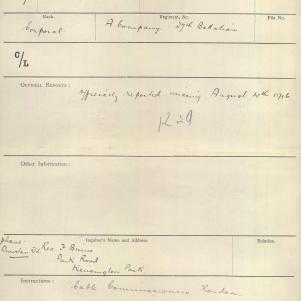 Rank.
Regiment, &c.
File No.
Corporal
A Company 27th Battalion
C/L
Official Reports:
Officially reported missing August 20th 1916.
K in A
Other Information:
Inquirer's Name and Address.
Relation.
phone.
Rev. F Binns
Park Road
Kensington Park
Instructions:
Cable Commissioners London.